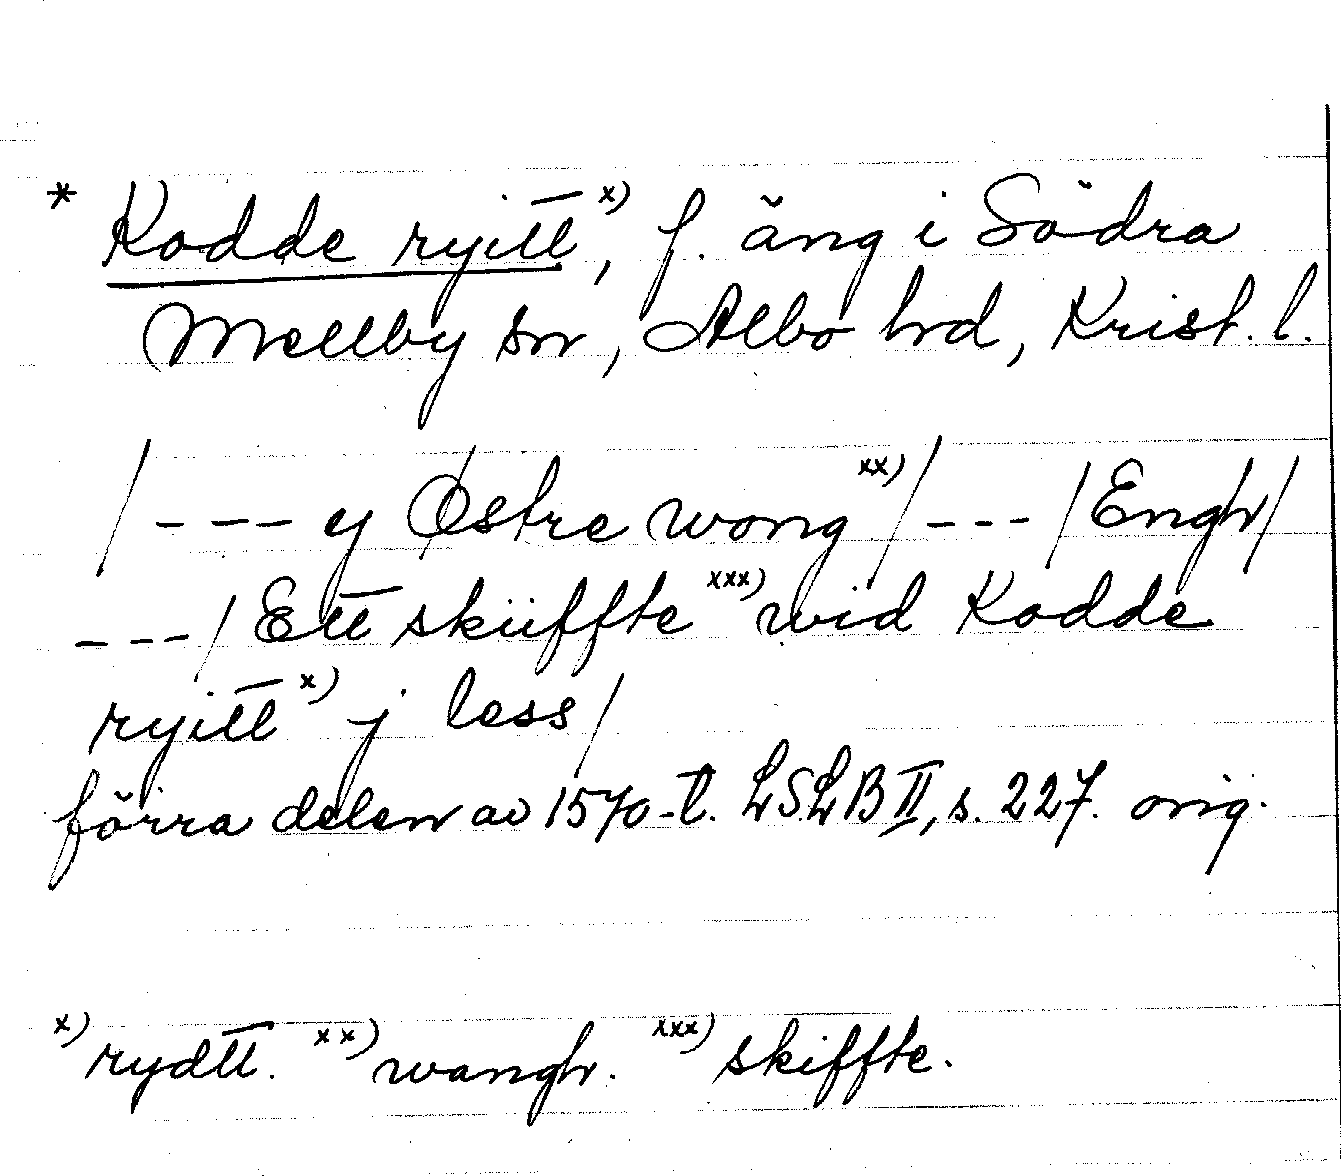 * Kodde ryitt x), f. äng i Södra
Mellby sn, Albo hd, Krist. l.
/--- y Østre wong xx)/---/Engh/
---/Ett skiiffte xxx) wid Kodde
ryitt x) j less/
förra delen av 1570-t. LSLB II, s. 227. orig.
x) rydtt. xx) wangh. xxx) skiffte.